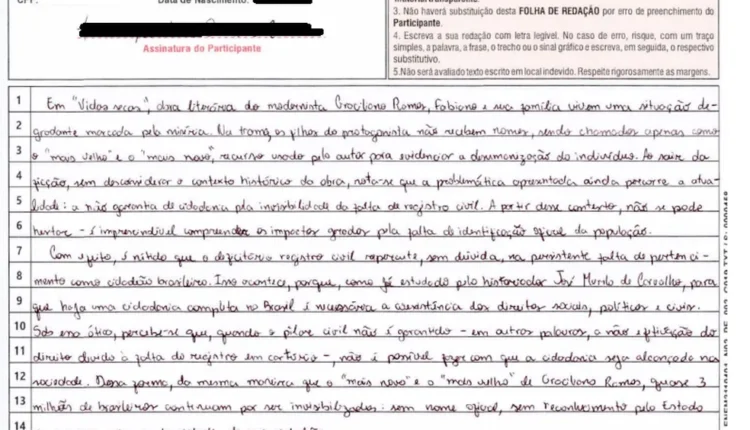 Data de Nascimento:
Assinatura do Participante
3. Não haverá substituição desta FOLHA DE REDAÇÃO por erro de preenchimento do
Participante.
4. Escreva a sua redação com letra legível. No caso de erro, risque, com um traço
simples, a palavra, a frase, o trecho ou o sinal gráfico e escreva, em seguida, o respectivo
substitutivo.
5.Não será avaliado texto escrito em local indevido. Respeite rigorosamente as margens.
1 Em "Vidas secas", obra literária do modernista Graciliano Ramos, Fabiano e sua família vivem uma situação de-
2 gradante marcada pela miséria. Na trama, os filhos do protagonista não recebem nomes, sendo chamados apenas como
3 o "mais velho" e o "mais novo", recurso usado pelo autor para evidenciar a desumanização do indivíduo. Ao sair da
4 ficção, sem desconsiderar o contexto histórico da obra, nota-se que a problemática apresentada ainda percorre a atua-
5 lidade: a não garantia de cidadania pela invisibilidade da falta de registro civil. A partir desse contexto, não se pode
6 hesitar - é imprescindível compreender os impactos gerados pela falta de identificação oficial da população.
7 Com efeito, é nítido que o deficitário registro civil repercute, sem dúvida, na persistente falta de pertenci-
8 mento como cidadão brasileiro. Isso acontece, porque, como já estudado pelo historiador José Murilo de Carvalho, para
9 que haja uma cidadania completa no Brasil é necessária a coexistência dos direitos sociais, políticos e civis.
10 Sob essa ótica, percebe-se que, quando o pilar civil não é garantido - em outras palavras, a não efetivação do
11 direito devido à falta do registro em cartório -, não é possível fazer com que a cidadania seja alcançada na
12 sociedade. Dessa forma, da mesma maneira que o "mais novo" e o "mais velho" de Graciliano Ramos, quase 3
13 milhões de brasileiros continuam por ser invisibilizados: sem nome oficial, sem reconhecimento pelo Estado
14